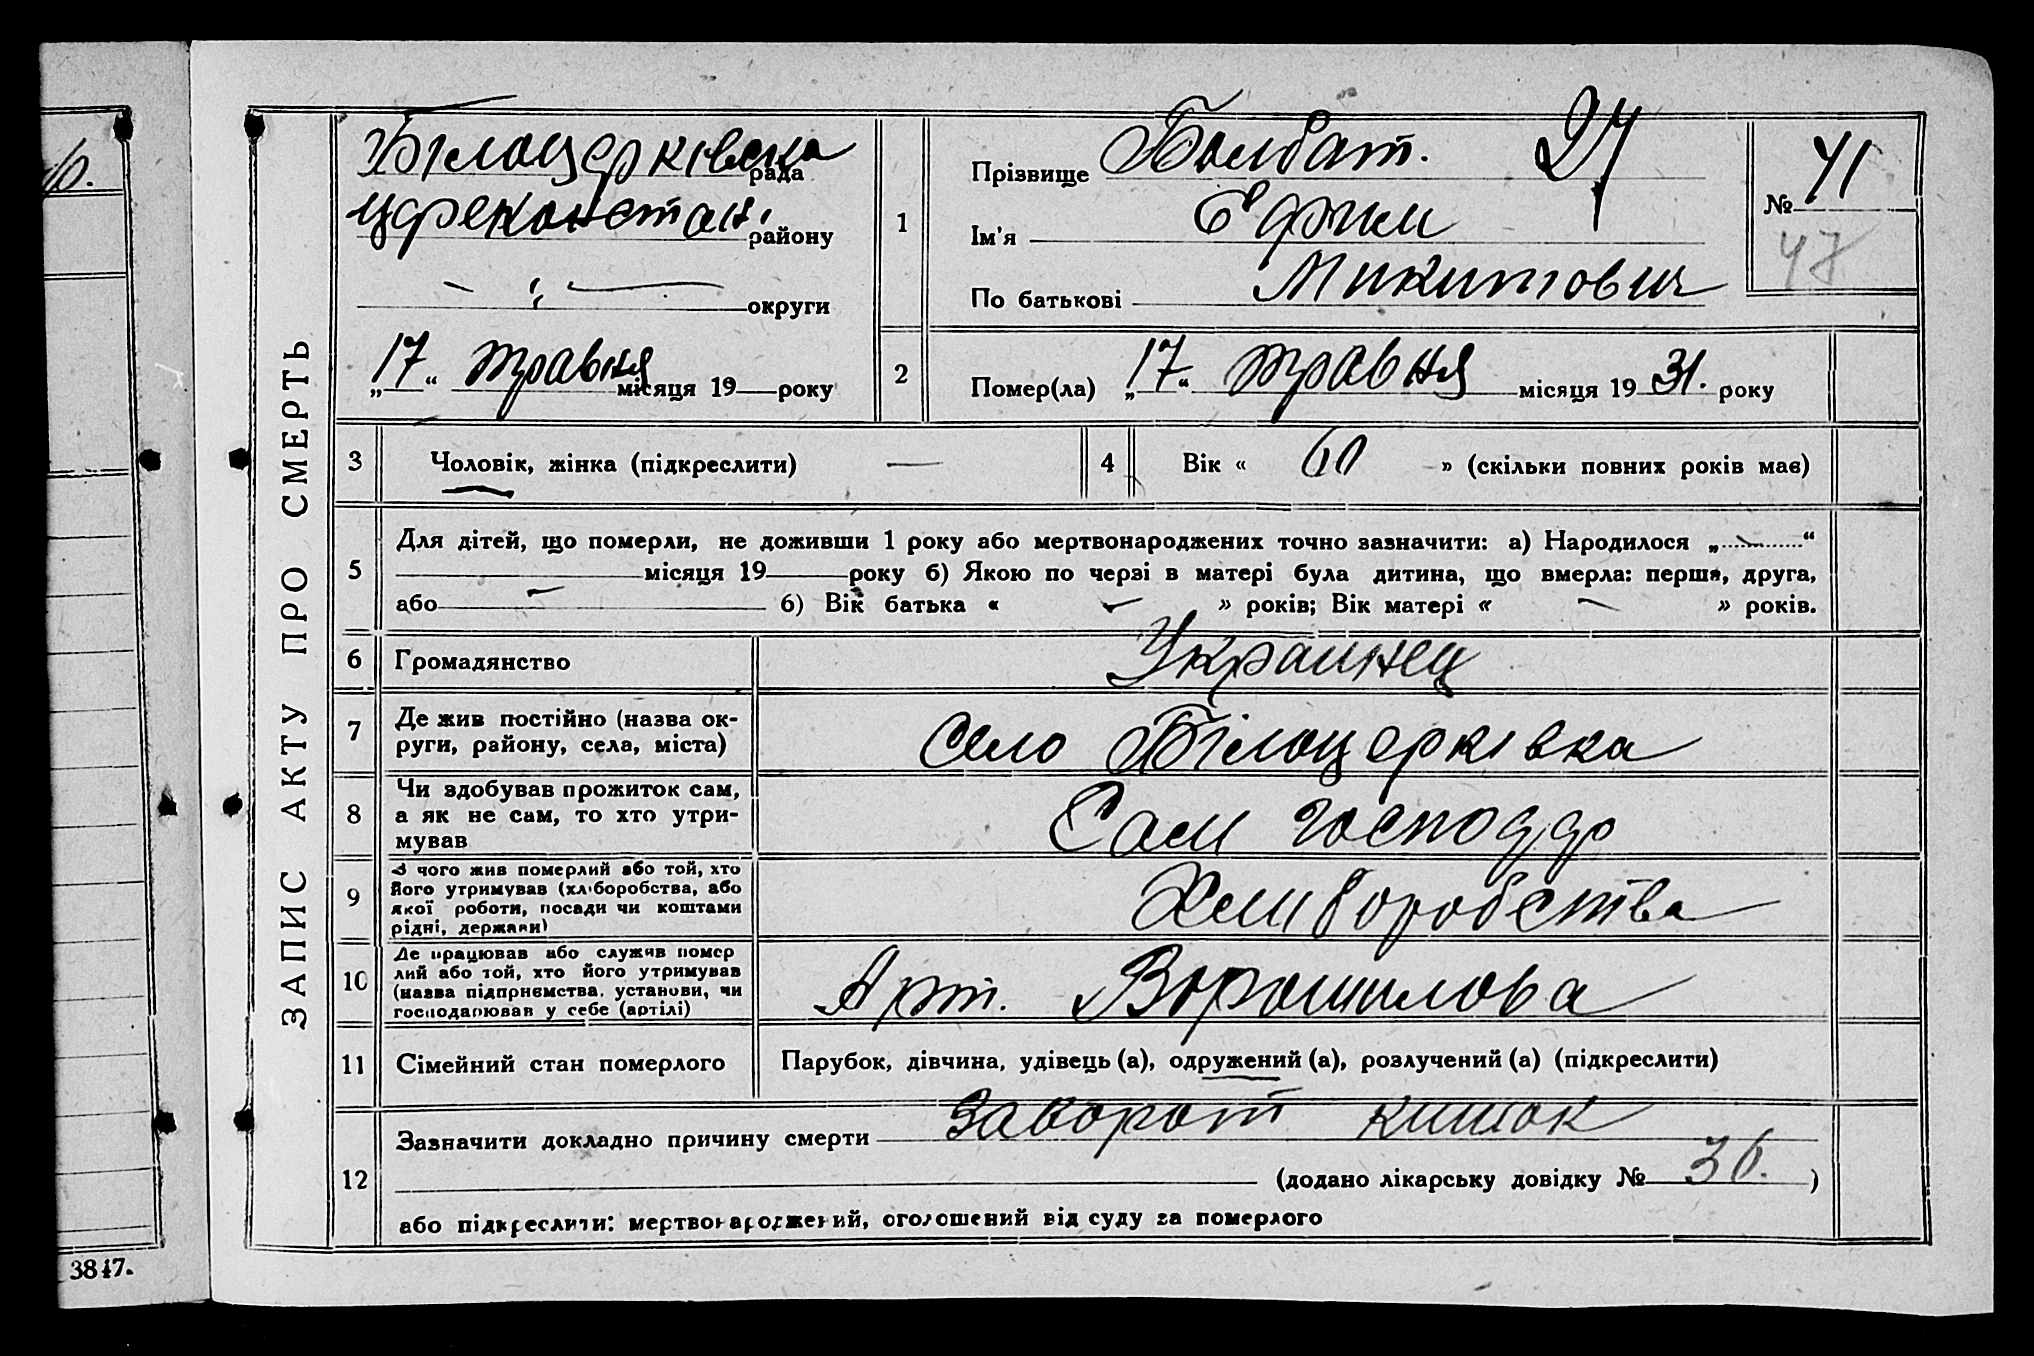 р.
3847.
ЗАПИС АКТУ ПРО СМЕРТЬ
Білоцерківска рада
району
— „ — округи
„17“ травня місяця 19 року
1
Прізвище Болбат. 24
Ім'я Ефрим
По батькові Микитович
№ 41
47
2
Помер(ла) „17“ травня місяця 1931. року
3 Чоловік, жінка (підкреслити) —
4 Вік « 60 » (скільки повних років має)
5 Для дітей, що померли, не доживши 1 року або мертвонароджених точно зазначити: а) Народилося „ — “
місяця 19 року б) Якою по черзі в матері була дитина, що вмерла: перша, друга,
або — б) Вік батька « — » років; Вік матері « — » років.
6 Громадянство Украинец
7 Де жив постійно (назва ок-
руги, району, села, міста) село Білоцерківка
8 Чи здобував прожиток сам,
а як не сам, то хто утри-
мував Сам господар
9 З чого жив померлий або той, хто
його утримував (хліборобства, або
якої роботи, посади чи коштами
рідні, держави) Хлиборобства
10 Де працював або служив помер
лий або той, хто його утримував
(назва підприємства, установи, чи
господарював у себе (артілі) Арт. Ворошилова
11 Сімейний стан померлого Парубок, дівчина, удівець (а), одружений (а), розлучений (а) (підкреслити)
12 Зазначити докладно причину смерти Заворот кишок
(додано лікарську довідку № 36. )
або підкреслити: мертвонароджений, оголошений від суду за померлого